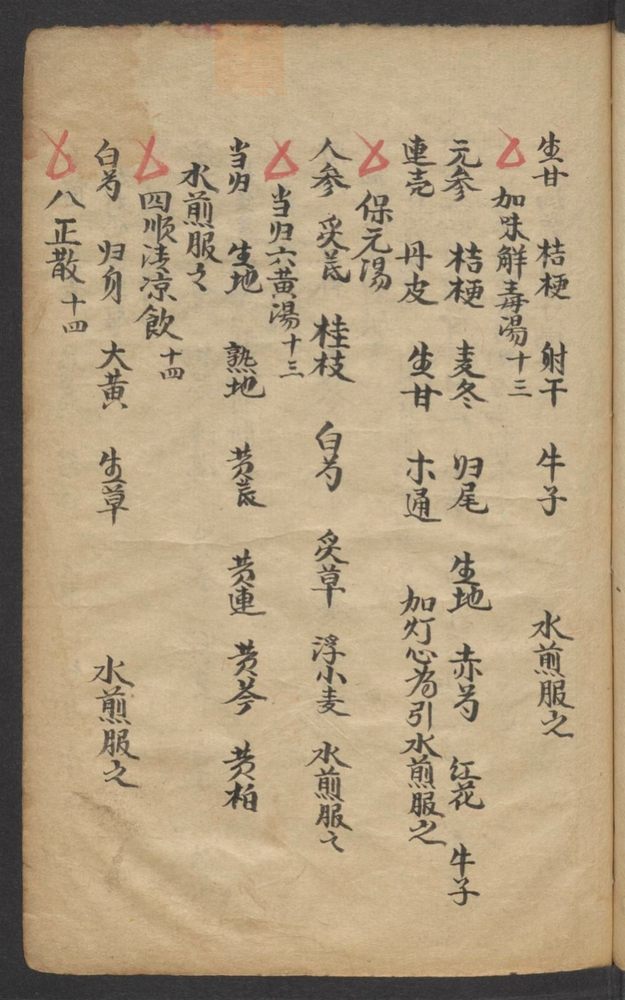 生甘 桔梗 射干 牛子 水煎服之
加味解毒湯十三
元参 桔梗 麦冬 归尾 生地 赤芍 红花 牛子
連壳 丹皮 生甘 木通 加灯心為引水煎服之
保元湯
人参 炙芪 桂枝 白芍 炙草 浮小麦 水煎服之
当归六黄湯十三
当归 生地 熟地 黄芪 黄連 黄芩 黄柏
水煎服之
四顺清凉飲十四
白芍 归身 大黄 生草 水煎服之
八正散十四